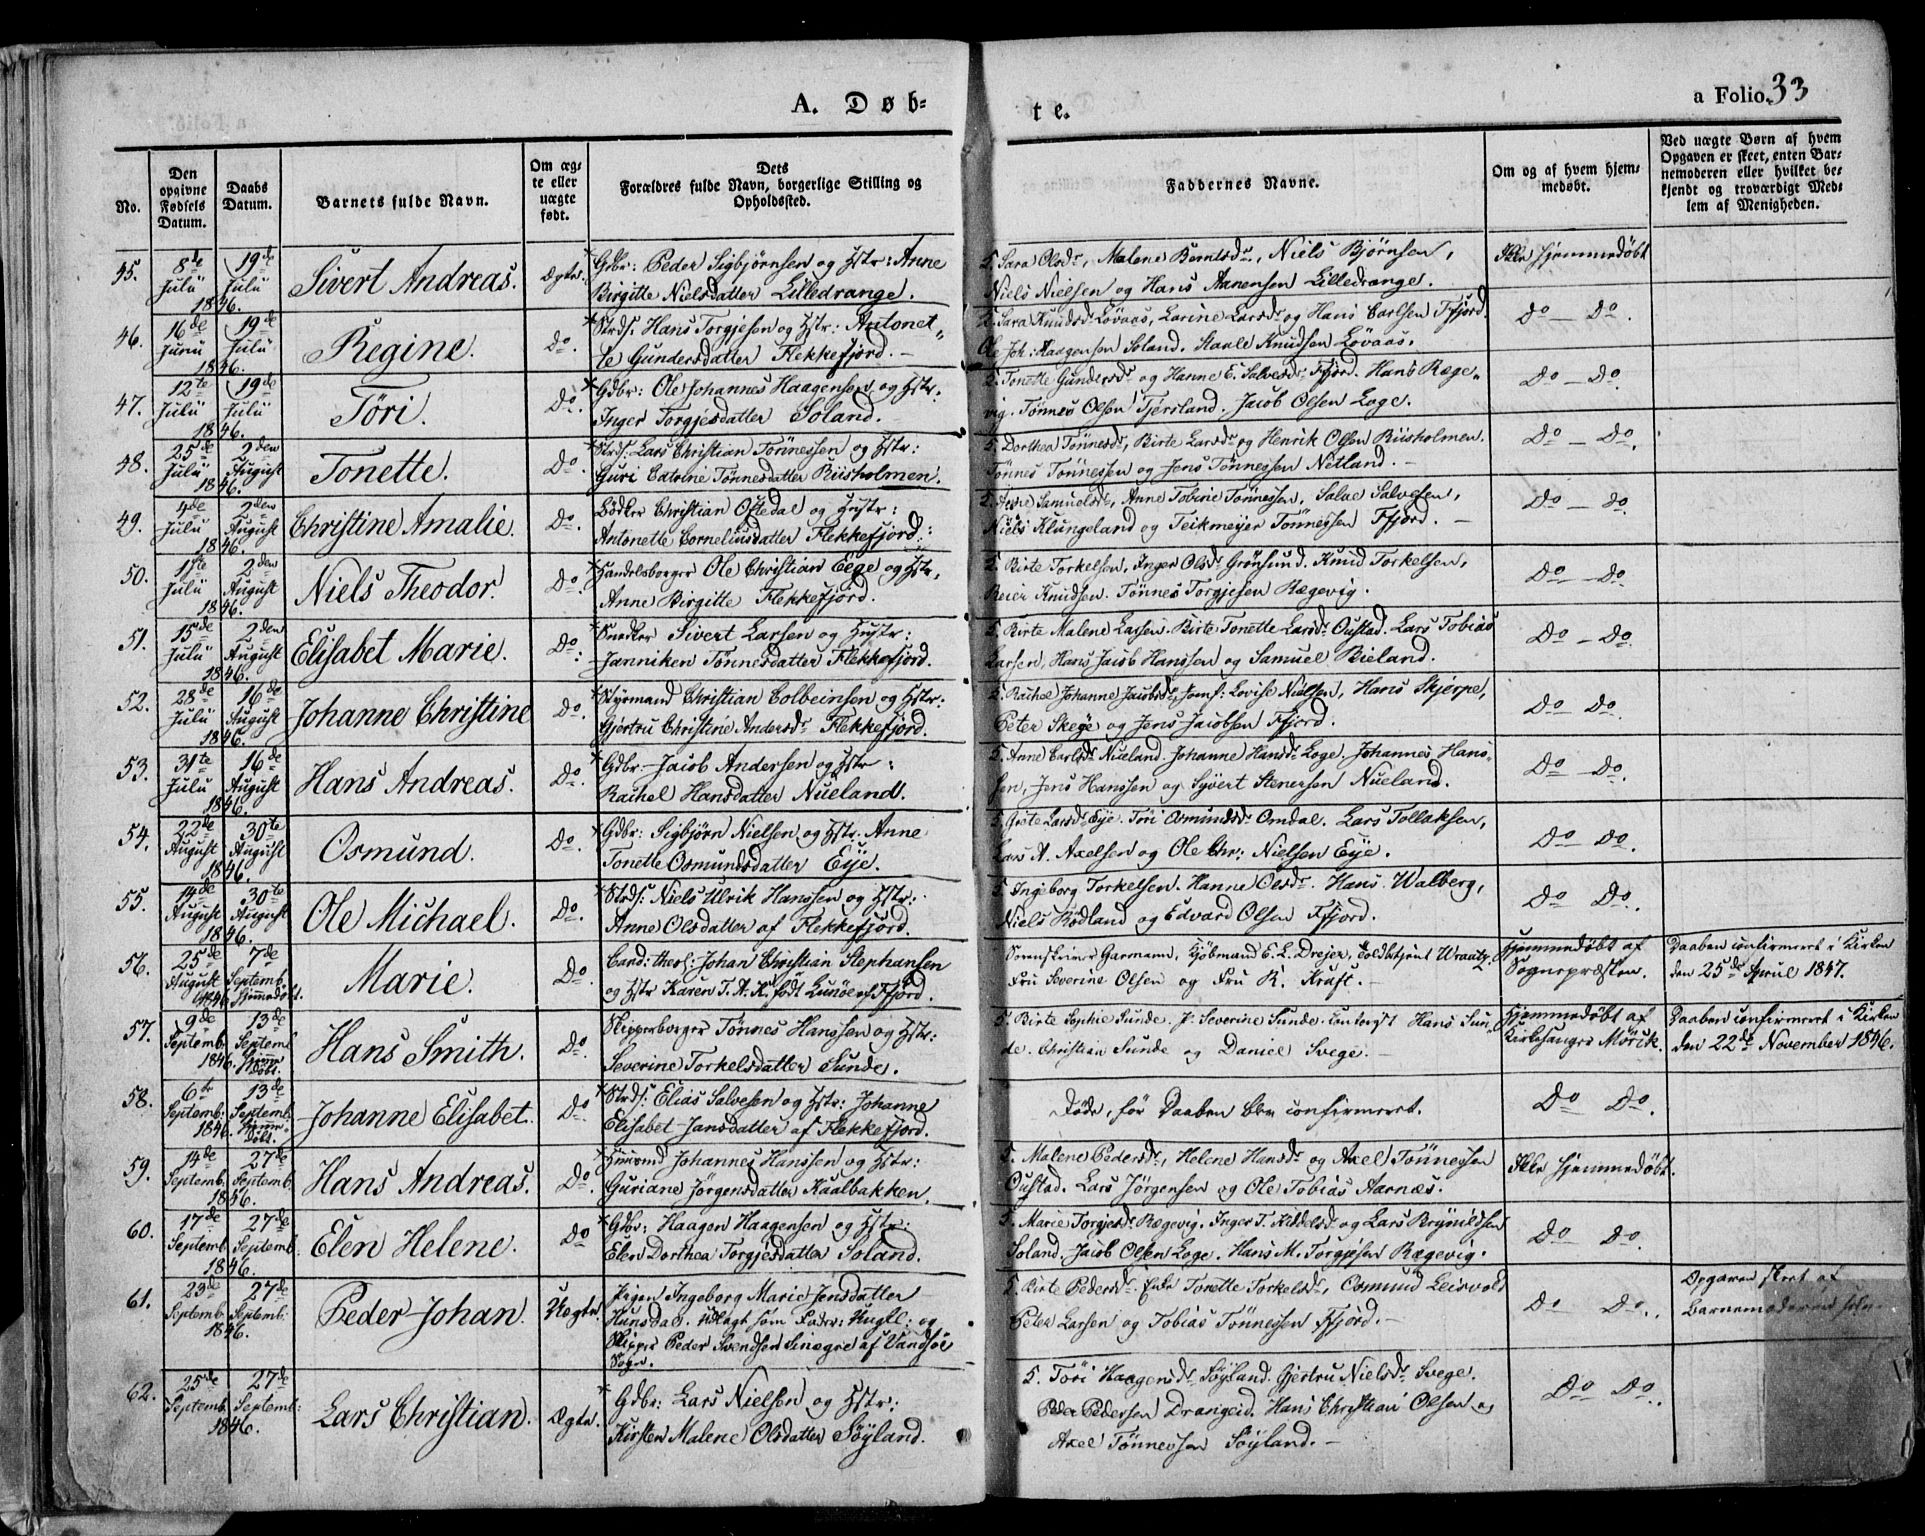 A. Døb-
te.
a Folio 33
No.
Den opgivne Fødsels Datum.
Daabs Datum.
Barnets fulde Navn.
Om ægte eller uægte født.
Dets Forældres fulde Navn, borgerlige Stilling og Opholdssted.
Faddernes Navne.
Om og af hvem hjemmedøbt.
Ved uægte Børn af hvem Opgaven er skeet, enten Barnemoderen eller hvilket bekjendt og troværdigt Medlem af Menigheden.
45. 8de Juli 19de Juli 1846. Sivert Andreas. Ægte.
Gdbr: Peder Sigbjørnsen og Hstr: Anne
Birgitte Nielsdatter Lilledrange.
5. Sara Olsdr, Malene Berntsdr, Niels Bjørnsen,
Niels Nielsen og Hans Aanensen Lilledrange.
Ikke hjemmedøbt
46. 16de Juni 19de Juli 1846. Regine. Do.
Strds: Hans Torgjesen og Hstr: Antonet-
te Gundersdatter Flekkefjord.
Sara Knudsdr Lövaas, Larine Larsdr og Hans Carlsen Ffjord.
Ole Joh: Haagensen Soland. Staale Knudsen Lövaas.
Do — Do.
47. 12te Juli 19de Juli 1846. Töri. Do.
Gdbr: Ole Johannes Haagensen og Hstr.
Inger Torgjesdatter Soland.
Tonette Gundersdr og Hanne E. Salvesdr Ffjord. Hans Ræge-
vig. Tönnes Olsen Tjersland. Jacob Olsen Loge.
Do — Do.
48. 25de Juli 2den August 1846. Tonette. Do.
Strds: Lars Christian Tönnessen og Hstr:
Guri Catrine Tönnesdatter Riisholmen.
5. Dorthea Tönnesdr, Birte Larsdr og Henrik Olsen Riisholmen.
Tönnes Tönnessen og Jens Tönnessen Netland.
Do — Do.
49. 4de Juli 2den August 1846. Christine Amalie. Do.
Bödker Christian Oftedal og Hustr:
Antonette Corneliusdatter Flekkefjord.
Samuelsdr, Anne Tobine Tönnessen, Salve Salvesen,
Niels Klungeland og Teikmeyer Tönnessen Ffjord.
Do — do.
50. 1ste Juli 2den August 1846. Niels Theodor. Do.
Handelsborger Ole Christian Eege og Hstr,
Anne Birgitte Flekkefjord.
5. Birte Torkelsen, Inger Olsdr Grönsund. Knud Torkelsen,
Reier Knudsen. Tönnes Torgjesen Rægevig.
Do — Do.
51. 15de Juli 2den August 1846. Elisabet Marie. Do.
Snedker Sivert Larsen og Hustr:
Janniken Tönnesdatter Flekkefjord.
5. Birte Malene Larsen. Birte Tonette Larsdr Oustad. Lars Tobias
Larsen, Hans Jacob Hanssen og Samuel Bieland.
Do — Do.
52. 28de Juli 16de August 1846. Johanne Christine Do.
Styrmand Christian Colbeinsen og Hstr:
Gjertru Christine Andersdr Flekkefjord.
5. Rachel Johanne Jacobsdr, Jomf: Lovise Nielsen, Hans Skjerpe,
Peter Skeye og Jens Jacobsen Ffjord.
Do Do.
53. 31te Juli 16de August 1846. Hans Andreas. Do.
Gdbr: Jacob Andersen og Hstr:
Rachel Hansdatter Nueland.
5. Anne Carlsdr Nueland. Johanne Hansdr Loge. Johannes Hans-
sen, Jens Hanssen og Syvert Stenersen Nueland.
Do — Do.
54. 22de August 30te August 1846. Osmund. Do.
Gdbr: Sigbjørn Nielsen og Hstr. Anne
Tonette Osmundsdatter Eye.
5. Grete Larsdr Eye. Töri Osmundsdr Omdal. Lars Tollaksen,
Lars A. Axelsen og Ole Chr: Nielsen Eye.
Do Do.
55. 14de August 30te August 1846. Ole Michael. Do.
Strds: Niels Ulrik Hanssen og Hstr:
Anne Olsdatter af Flekkefjord.
5. Ingeborg Torkelsen. Hanne Olsdr. Hans Walberg,
Niels Rödland og Edvard Olsen Ffjord.
Do Do.
56. 25de August 7de Septemb. 1846. Hjemmedøbt. Marie. Do.
Cand: theol: Johan Christian Stephansen
og Hstr Karen T. A. K. född Lunöe af Ffjord.
Sorenskriver Garmann, Kjöbmand E. L. Drejer, Toldbetjent Wraatz.
Fru Severine Olsen og Fru K. Kraft.
Hjemmedøbt af
Sognepræsten.
Daaben confirmeret i Kirken
den 25de April 1847.
57. 9de Septemb. 13de Septemb 1846. Hjemmedøbt. Hans Smith. Do.
Skipperborger Tönnes Hanssen og Hstr:
Severine Torkelsdatter Sunde.
5. Birte Sophie Sunde. J: Severine Sunde. Hans Sun-
de. Christian Sunde og Daniel Svege.
Hjemmedøbt af
Kirkesanger Mörik.
Daaben confirmeret i Kirken
den 22de November 1846.
58. 6te Septemb: 13de Septemb. 1846. Hjemmedøbt. Johanne Elisabet. Do.
Strds: Elias Salvesen og Hstr: Johanne
Elisabet Jansdatter af Flekkefjord.
Döde, för Daaben blev confirmeret.
Do Do.
59. 14de Septemb. 27de Septemb. 1846. Hans Andreas. Do.
Huusmd Johannes Hanssen og Hstr:
Guriane Jörgensdatter Kaalbakken.
5. Malene Pedersdr, Helene Hansdr og Axel Tönnessen
Oustad. Lars Jörgensen og Ole Tobias Aarnæs.
Ikke hjemmedøbt.
60. 17de Septemb 27de Septemb. 1846. Elen Helene. Do
Gdbr: Haagen Haagensen og Hstr:
Elen Dorthea Torgjesdatter Soland.
5. Marie Torgjesdr Rægevig. Inger T. Kiddelsdr og Lars Brynildsen
Soland. Jacob Olsen Loge. Hans M. Torgjesen Rægevig.
Do Do.
61. 23de Septemb. 27de Septemb. 1846. Peder Johan. Uægte.
Pigen Ingeborg Marie Jensdatter
Hunsdal. Udlagt som Fader: Ungk: og
Skipper Peder Svendsen Sinægre af Vandsöe
Sogn.
5. Birte Pedersdr. Enke Tonette Torkelsdr, Osmund Leisvold
Peter Larsen og Tobias Tönnessen Ffjord.
Do Do.
Opgaven skeet af
Barnemoderen selv.
62. 25de Septemb. 27de Septemb: 1846. Lars Christian. Ægte.
Gdbr: Lars Nielsen og Hstr:
Kirsten Malene Olsdatter Söyland.
5. Töri Haagensdr Söyland. Gjertru Nielsdr Svege.
Peder Pedersen Drangeid. Hans Christian Olsen og
Axel Tönnessen Söyland.
Do Do.